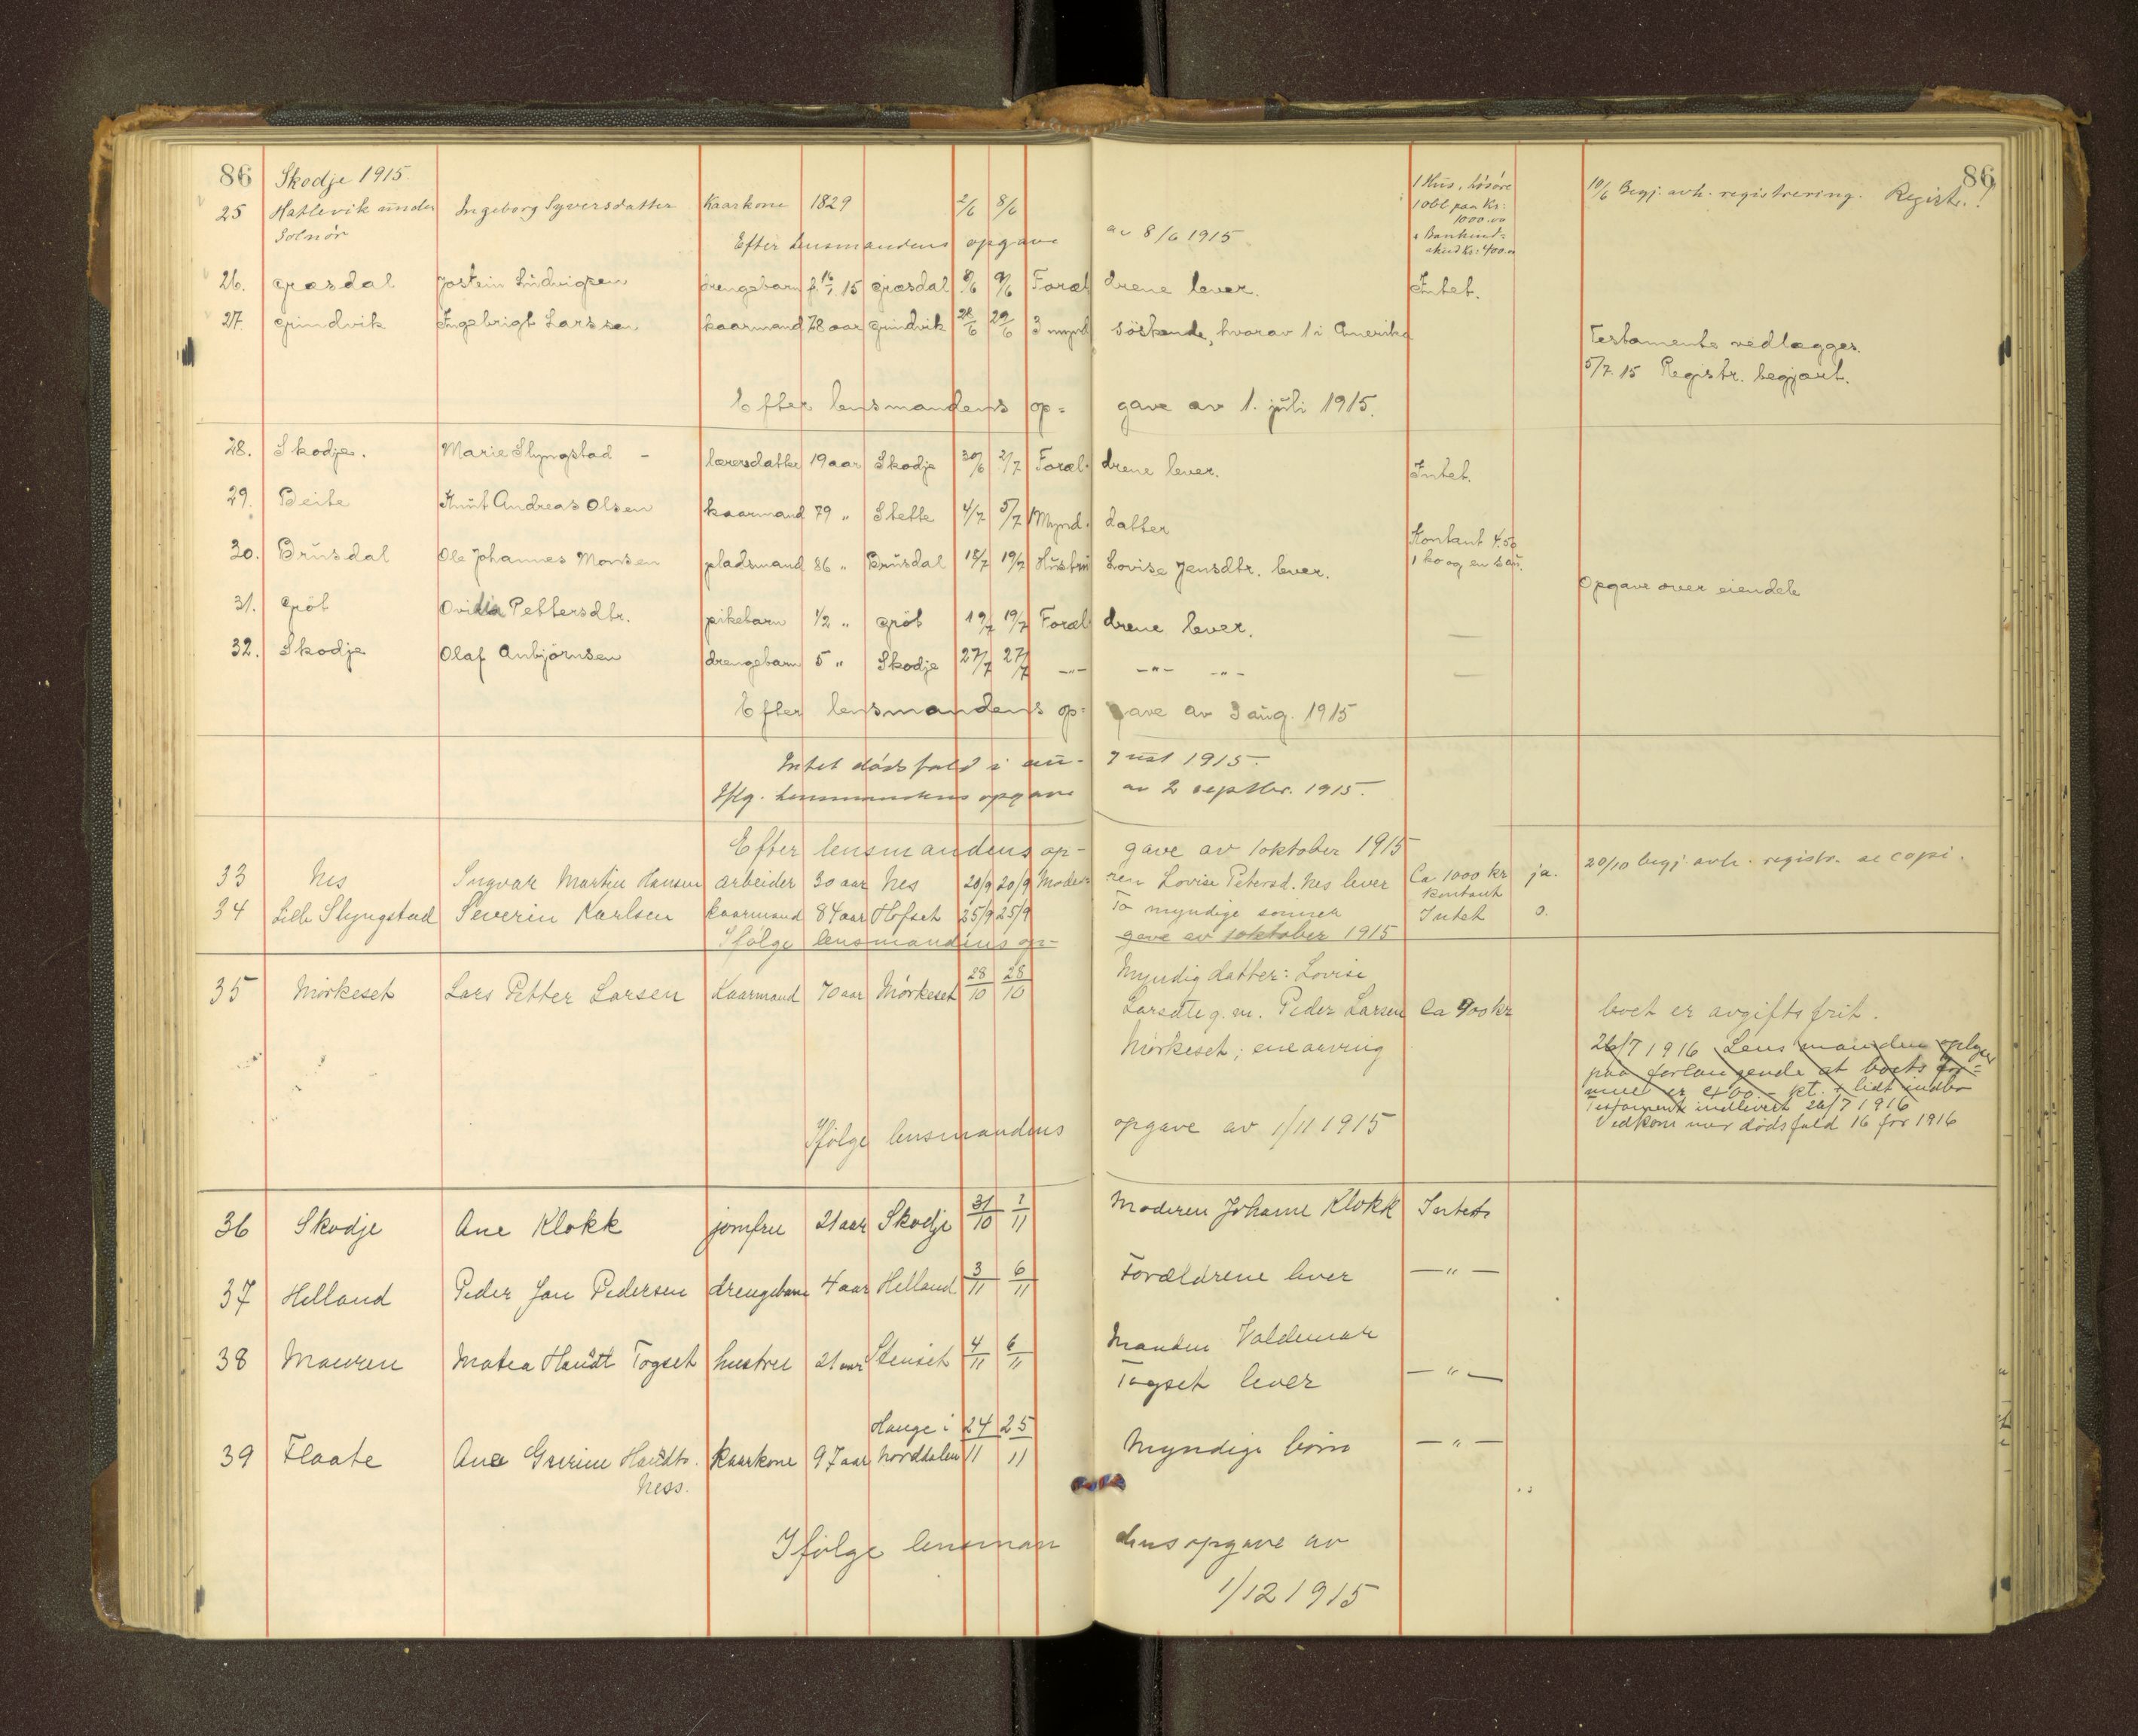 86 Skodje 1915 86
25 Hatlevik under Ingeborg Syversdatter Kaarkone 1829 2/6 8/6 1 Hus, løsøre 10/6 Begj. avh. registrering. Registr.!
Solnør 1 obl paa Kr: 1000.00
Efter lensmandens opgave av 8/6 1915 Kr: 400.00
26. Græsdal Jostein Ludvigsen drengebarn Græsdal 8/6 9/6 Foræl drene lever. Intet.
27. Grindvik Ingebrigt Larssen kaarmand 78 aar Grindvik 28/6 29/6 3 mynd søskende, hvorav 1 i Amerika Testamente vedlægges.
5/7. 15 Registr. begjært.
Efter lensmandens op= gave av 1. juli 1915.
28. Skodje. Marie Slyngstad - lærersdatter 19 aar Skodje 30/6 2/7 Foræl drene lever. Intet.
29. Beite Knut Andreas Olsen kaarmand 79 " Stette 4/7 5/7 1 Mynd. datter
30. Brusdal Ole Johannes Monsen pladsmand 86 " Brusdal 18/7 19/7 Hustru Lovise Jensdtr. lever. Kontant 4.50 1 ko og en sau. Opgave over eiendele
31. Grøt Pettersdtr. pikebarn 1/2 " Grøt 19/7 19/7 Foræl drene lever. —
32. Skodje Olaf Anbjørnsen drengebarn 5 " Skodje 27/7 27/7 -"- -"- -"- —
Efter lensmandens op= gave av 3 aug. 1915
Intet dødsfald i au- gust 1915.
Iflg. lensmandens opgave av 2 septbr. 1915.
Efter lensmandens op- gave av 1 oktober 1915
33 Nes Ingvar Martin Hansen arbeider 30 aar Nes 20/9 20/9 Mode- ren Lovise Petersd. Nes lever Ca 1000 kr kontant ja. 20/10 begj. avh. registr. se copi.
34 Lille Slyngstad Severin Karlsen kaarmand 84 aar Hofset 25/9 25/9 To myndige sønner Intet 0.
Ifølge lensmandens op- gave av 1 oktober 1915
35 Mørkeset Lars Petter Larsen Kaarmand 70 aar Mørkeset 28/10 28/10 Myndig datter: Lovise
Larsdtr g. m. Peder Larsen Ca 400 kr boet er avgiftsfrit.
Mørkeset; enearving
26/7 1916 Lensmanden oplyser
paa forlangende at boets for=
mue er 400.- kt. + lidt indbo
Testament indlevert 26/7 1916
Vedkommer dødsfald 16 for 1916
Ifølge lensmandens opgave av 1/11 1915
36 Skodje Ane Klokk jomfru 21 aar Skodje 31/10 1/11 Moderen Johanne Klokk Intet
37 Helland Peder Jan Pedersen drengebarn 4 aar Helland 3/11 6/11 Forældrene lever — " —
38 Mauren Matea Togset hustru 21 aar Stenset 4/11 6/11 Manden Valdemar
Togset lever — " —
39 Flaate Ane kaarkone 97 aar Hauge i Norddalen 24/11 25/11 Myndige børn — " —
Ness.
Ifølge lensman dens opgave av
1/12 1915